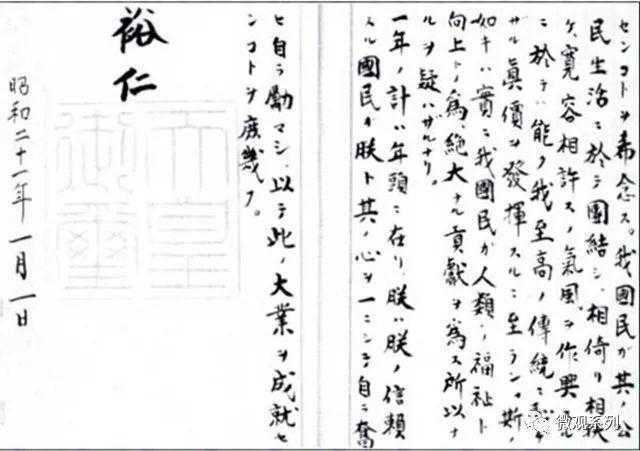 センコトヲ希念ス。我國民ガ其ノ公
民生活ニ於テ團結シ、相倚リ相扶
ケ、寛容相許スノ氣風ヲ作興スル
ニ於テハ能ク我至高ノ傳統ニ恥ヂ
ザル眞價ヲ發揮スルニ至ラン。斯ノ
如キハ實ニ我國民ガ人類ノ福祉ト
向上トノ爲、絶大ナル貢獻ヲ爲ス所以ナ
ルヲ疑ハザルナリ。
一年ノ計ハ年頭ニ在リ、朕ハ朕ノ信頼
スル國民ガ朕ト其ノ心ヲ一ニシテ自ラ奮
ヒ自ラ勵マシ、以テ此ノ大業ヲ成就セ
ンコトヲ庶幾フ。
裕仁
天皇
御璽
昭和二十一年一月一日
微观系列